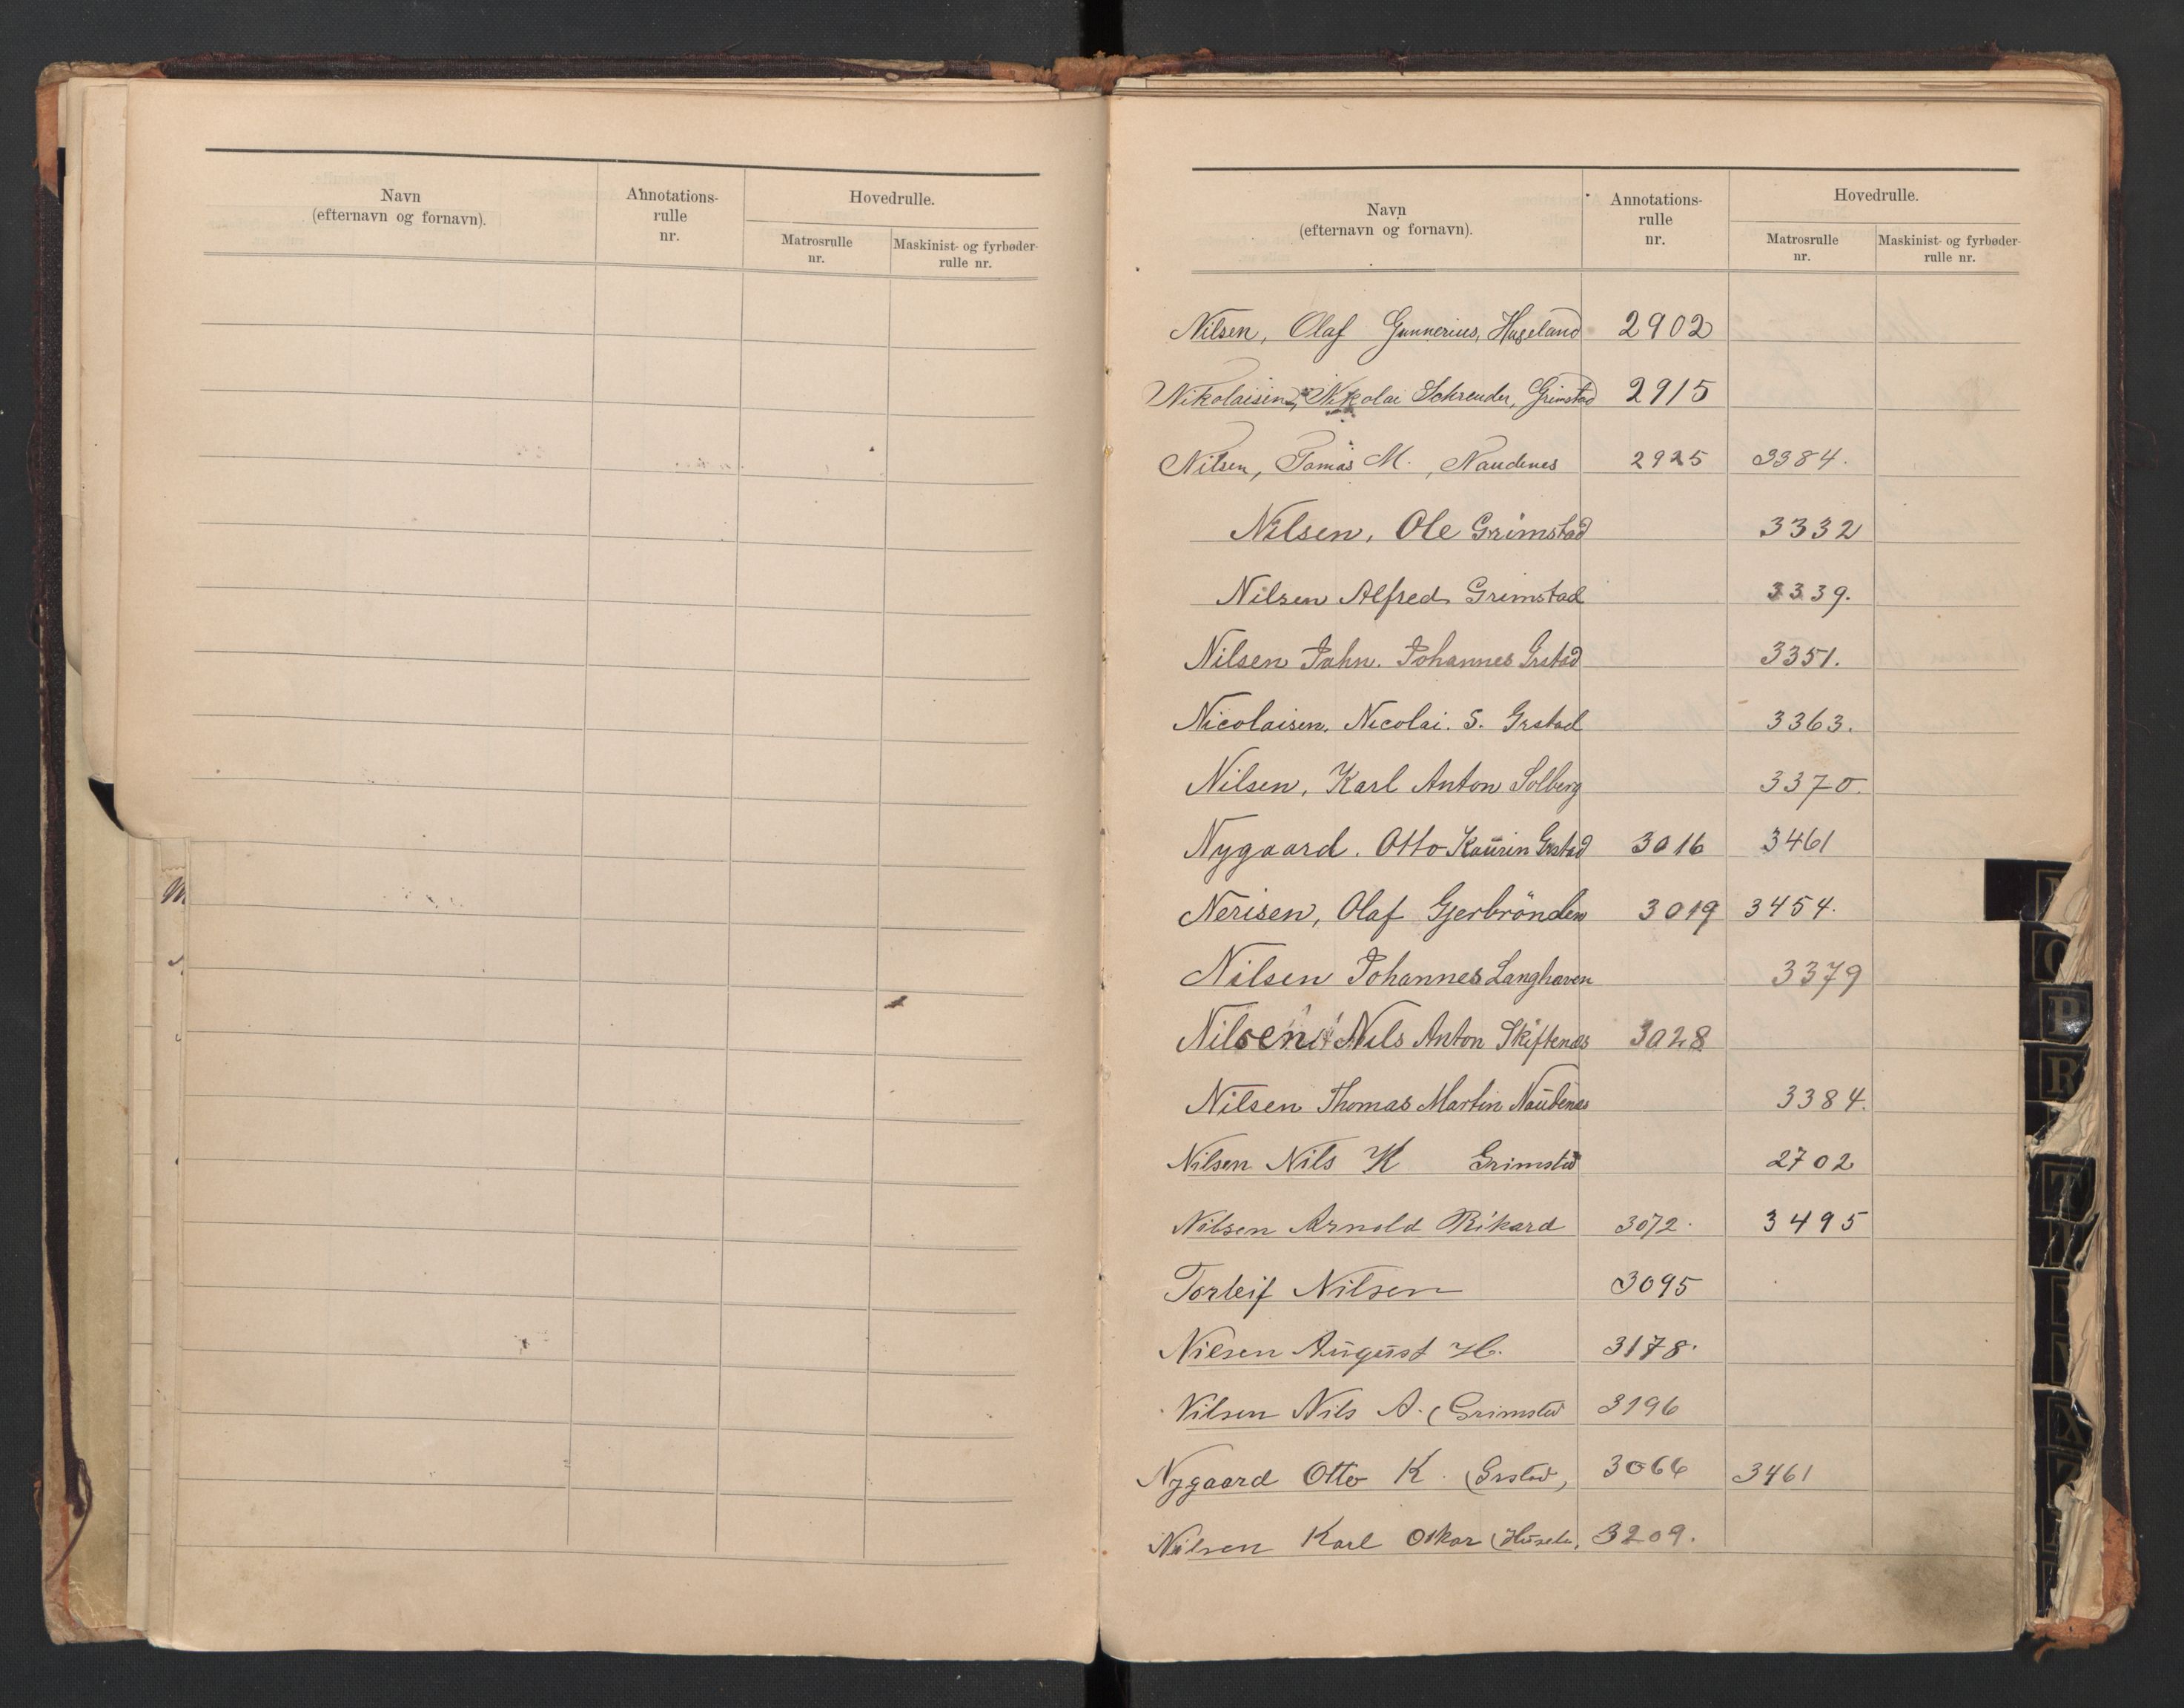 Navn
(efternavn og fornavn).
Annotations-
rulle
nr.
Hovedrulle.
Matrosrulle
nr.
Maskinist- og fyrbøder-
rulle nr.
Navn
(efternavn og fornavn).
Annotations-
rulle
nr.
Hovedrulle.
Matrosrulle
nr.
Maskinist- og fyrbøder-
rulle nr.
Nilsen, Olaf Gunnerius, Hageland 2902
Nikolaisen, Nikolai Schreuder, Grimstad 2915
Nilsen, Tomas M., Naudenes 2925 3384.
Nilsen, Ole Grimstad 3332
Nilsen Alfred Grimstad 3339.
Nilsen John. Johannes Grstad 3351.
Nicolaisen, Nicolai. S. Grstad 3363.
Nilsen, Karl Anton Solberg 3370.
Nygaard. Otto Kaurin Grstad 3016 3461
Nerisen, Olaf Gjerbrönden 3019 3454.
Nilsen Johannes Langhaven 3379
Nilsen Nils Anton Skiftenes 3028
Nilsen Thomas Martin Naudenes 3384.
Nilsen Nils K Grimstad 2702
Nilsen Arnold Rikard 3072. 3495
Torleif Nilsen 3095
Nilsen August H. 3178.
Nilsen Nils A. (Grimstad 3196
Nygaard Otto K. (Grstad, 3066 3461
Nilsen Karl Oskar 3209.
P
R
T
X